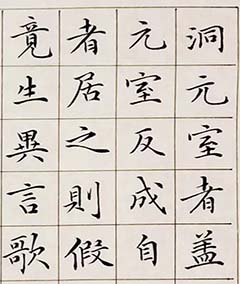 洞元室者盖
元室反成自
者居之則假
竟生異言歌